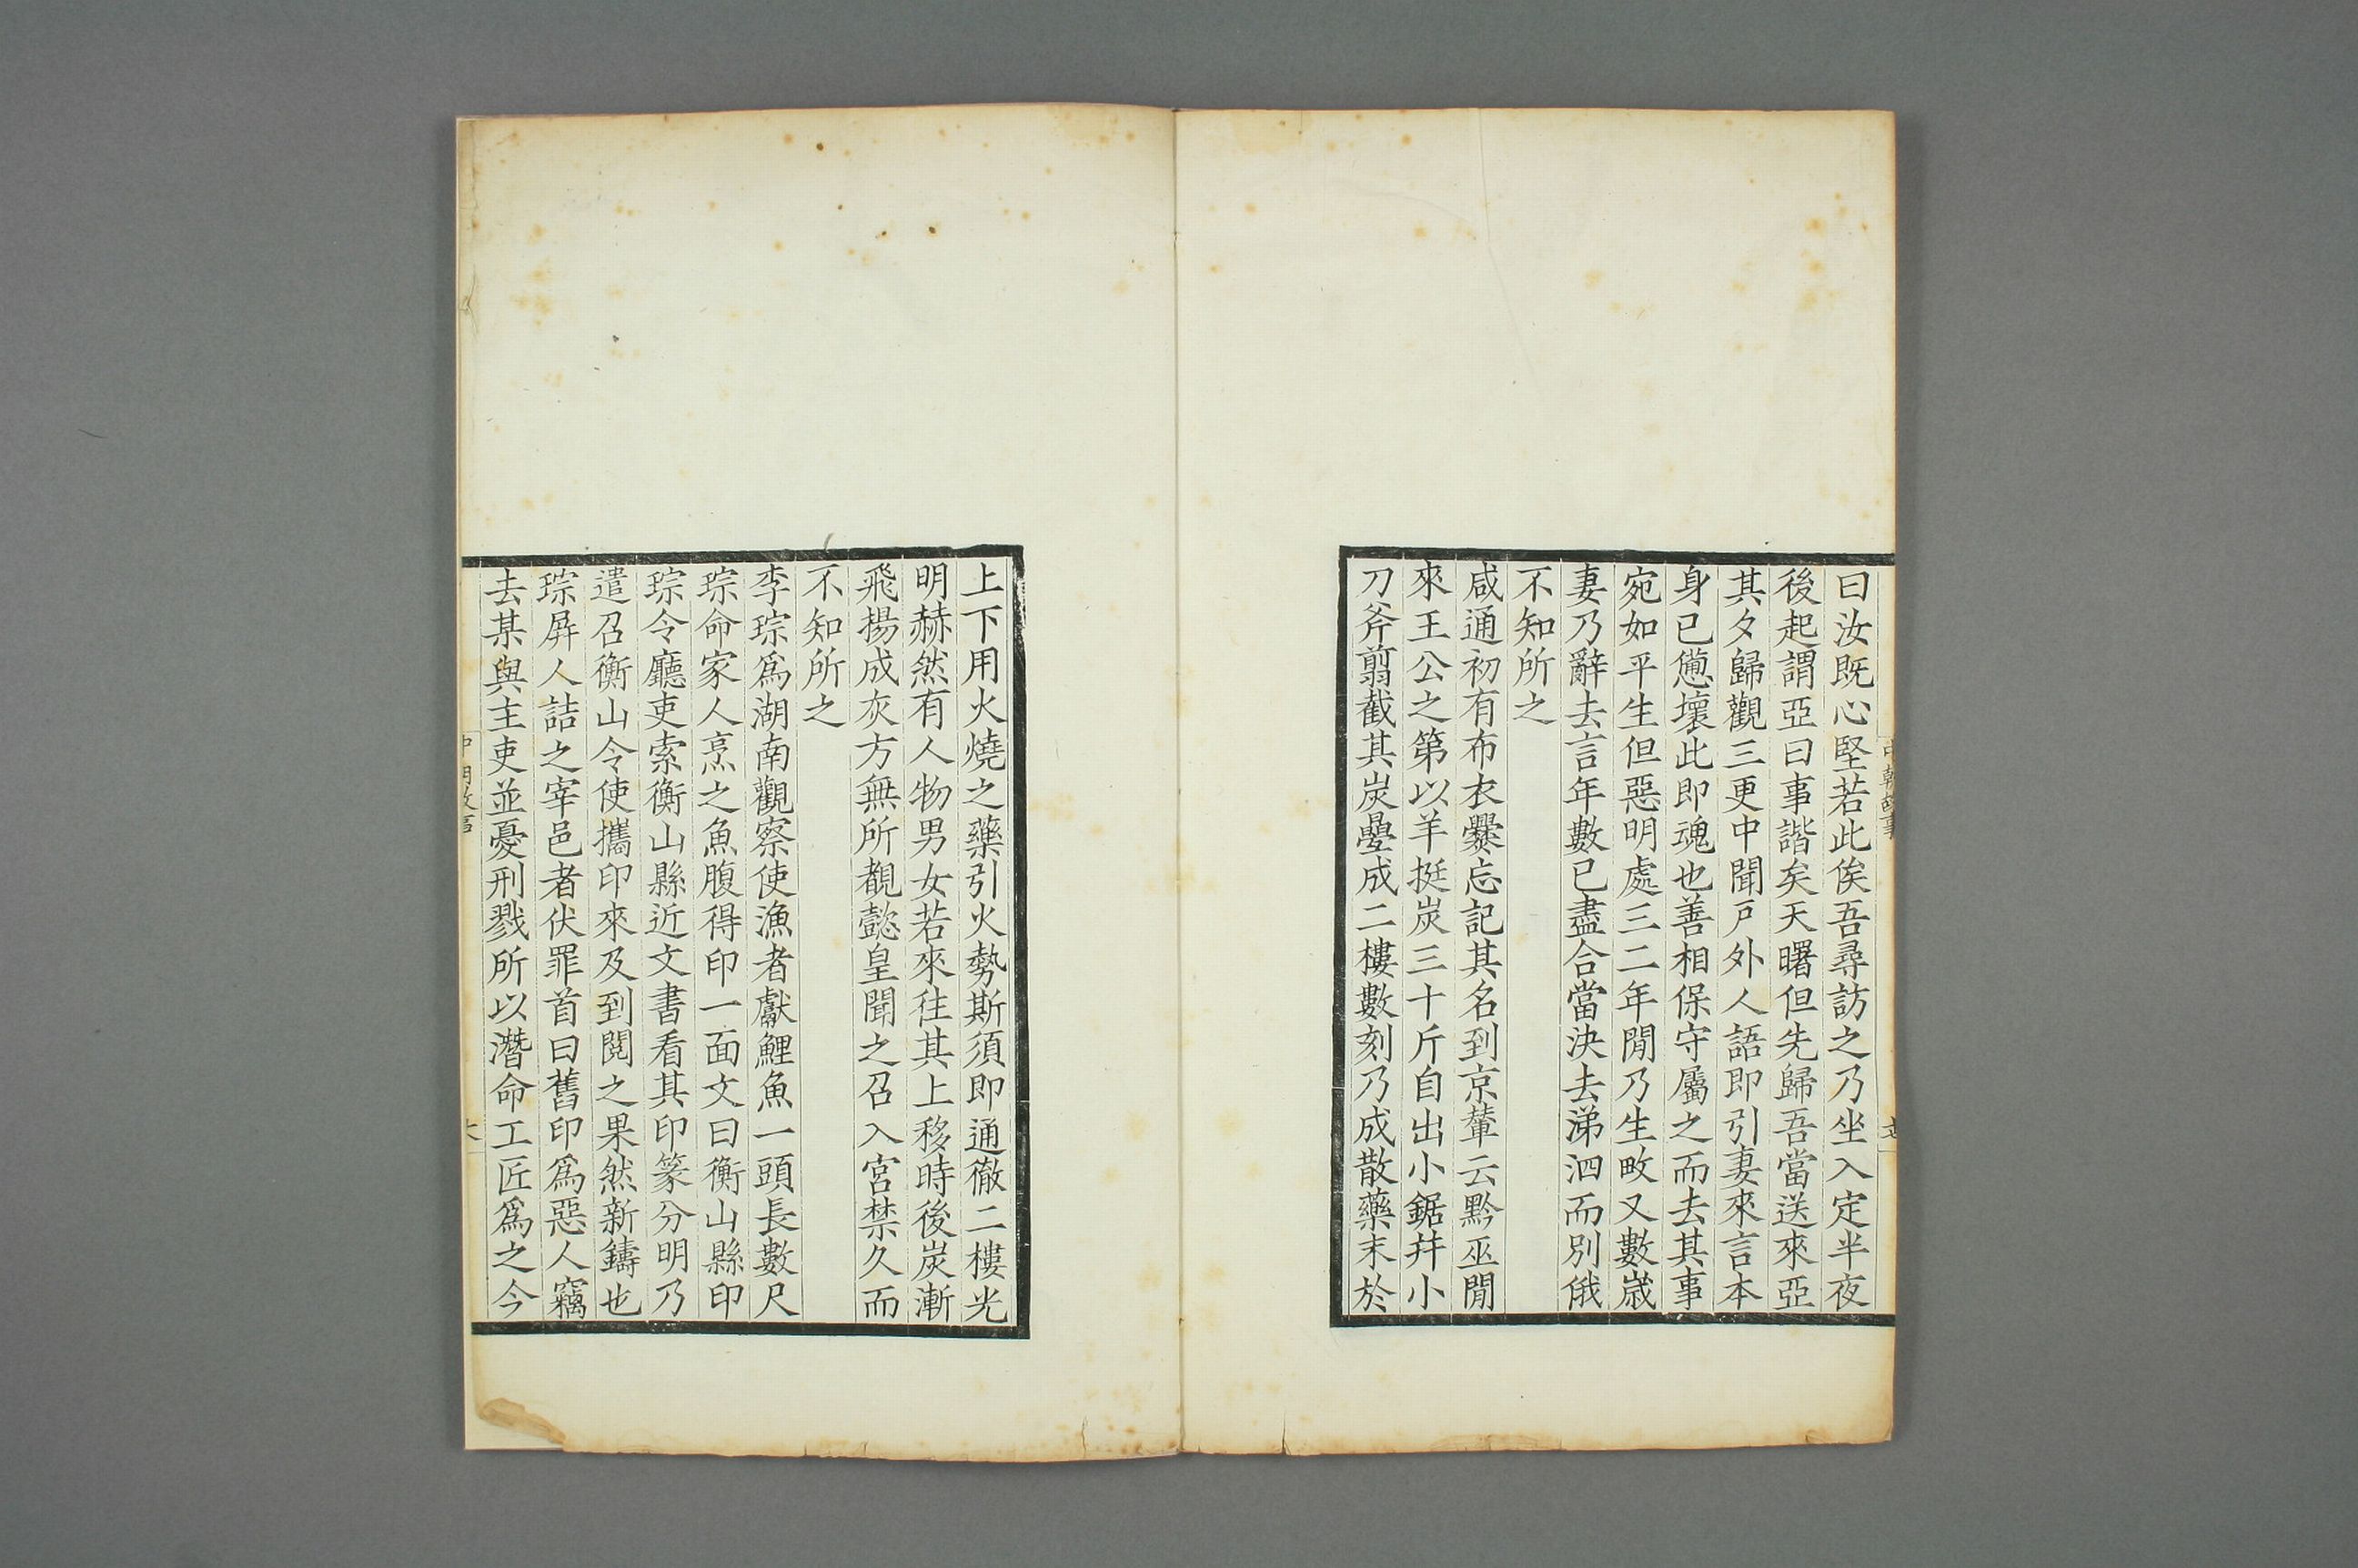 曰汝既心堅若此俟吾尋訪之乃坐入定半夜
後起謂亞曰事諧矣天曙但先歸吾當送來亞
其夕歸觀三更中聞戶外人語即引妻來言本
身已憊壞此即魂也善相保守屬之而去其事
宛如平生但惡明處三二年閒乃生㽗又數歲
妻乃辭去言年數已盡合當決去涕泗而別俄
不知所之
咸通初有布衣爨忘記其名到京輦云黔巫閒
來王公之第以羊挺炭三十斤自出小鋸幷小
刀斧翦截其炭疊成二樓數刻乃成散藥末於
上下用火燒之藥引火勢斯須即通徹二樓光
明赫然有人物男女若來往其上移時後炭漸
飛揚成灰方無所覩懿皇聞之召入宮禁久而
不知所之
李琮爲湖南觀察使漁者獻鯉魚一頭長數尺
琮命家人烹之魚腹得印一面文曰衡山縣印
琮令廳吏索衡山縣近文書看其印篆分明乃
遣召衡山令使攜印來及到閱之果然新鑄也
琮屛人詰之宰邑者伏罪首曰舊印爲惡人竊
去某與主吏並憂刑戮所以潛命工匠爲之今